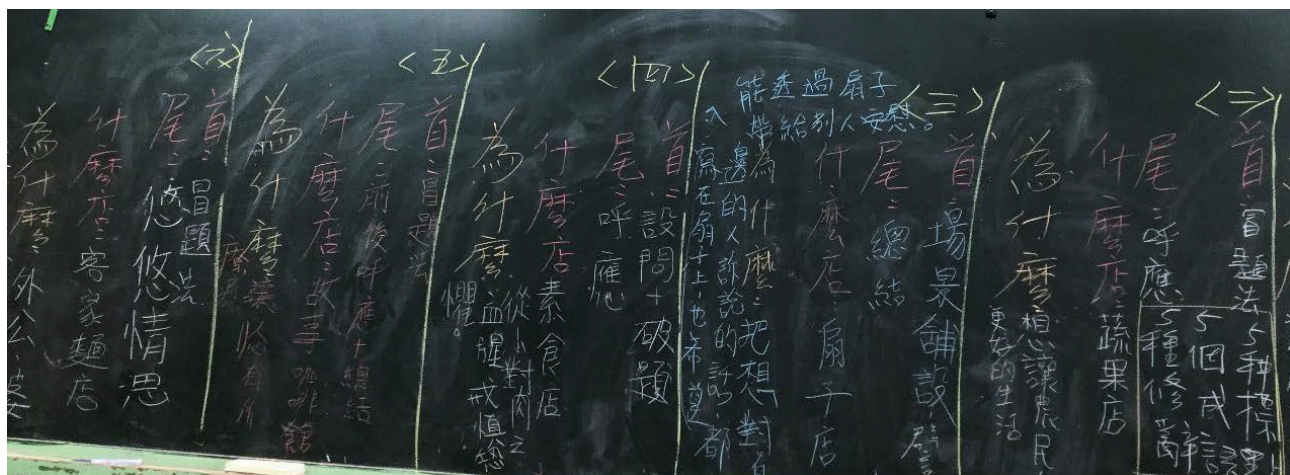 <二>
首:冒題法
尾:呼應
什麼店:蔬果店
為什麼:想讓農民
更好的生活
5種標
5個成語
5種修辭
<三>
首:場景鋪設
尾:總結
什麼店:扇子店
為什麼:把想對
邊的人訴說的話,都
寫在扇子上,也希望
能透過扇子
帶給別人安慰。
<四>
首:設問+破題
尾:呼應
什麼店:素食店
為什麼:從小對肉之
血腥戒慎恐
懼。
<五>
首:冒題法
尾:前後呼應+總結
什麼店:故事咖啡館
為什麼:讓
<六>
首:冒題法
尾:悠悠情思
什麼店:客家麵店
為什麼:外公、